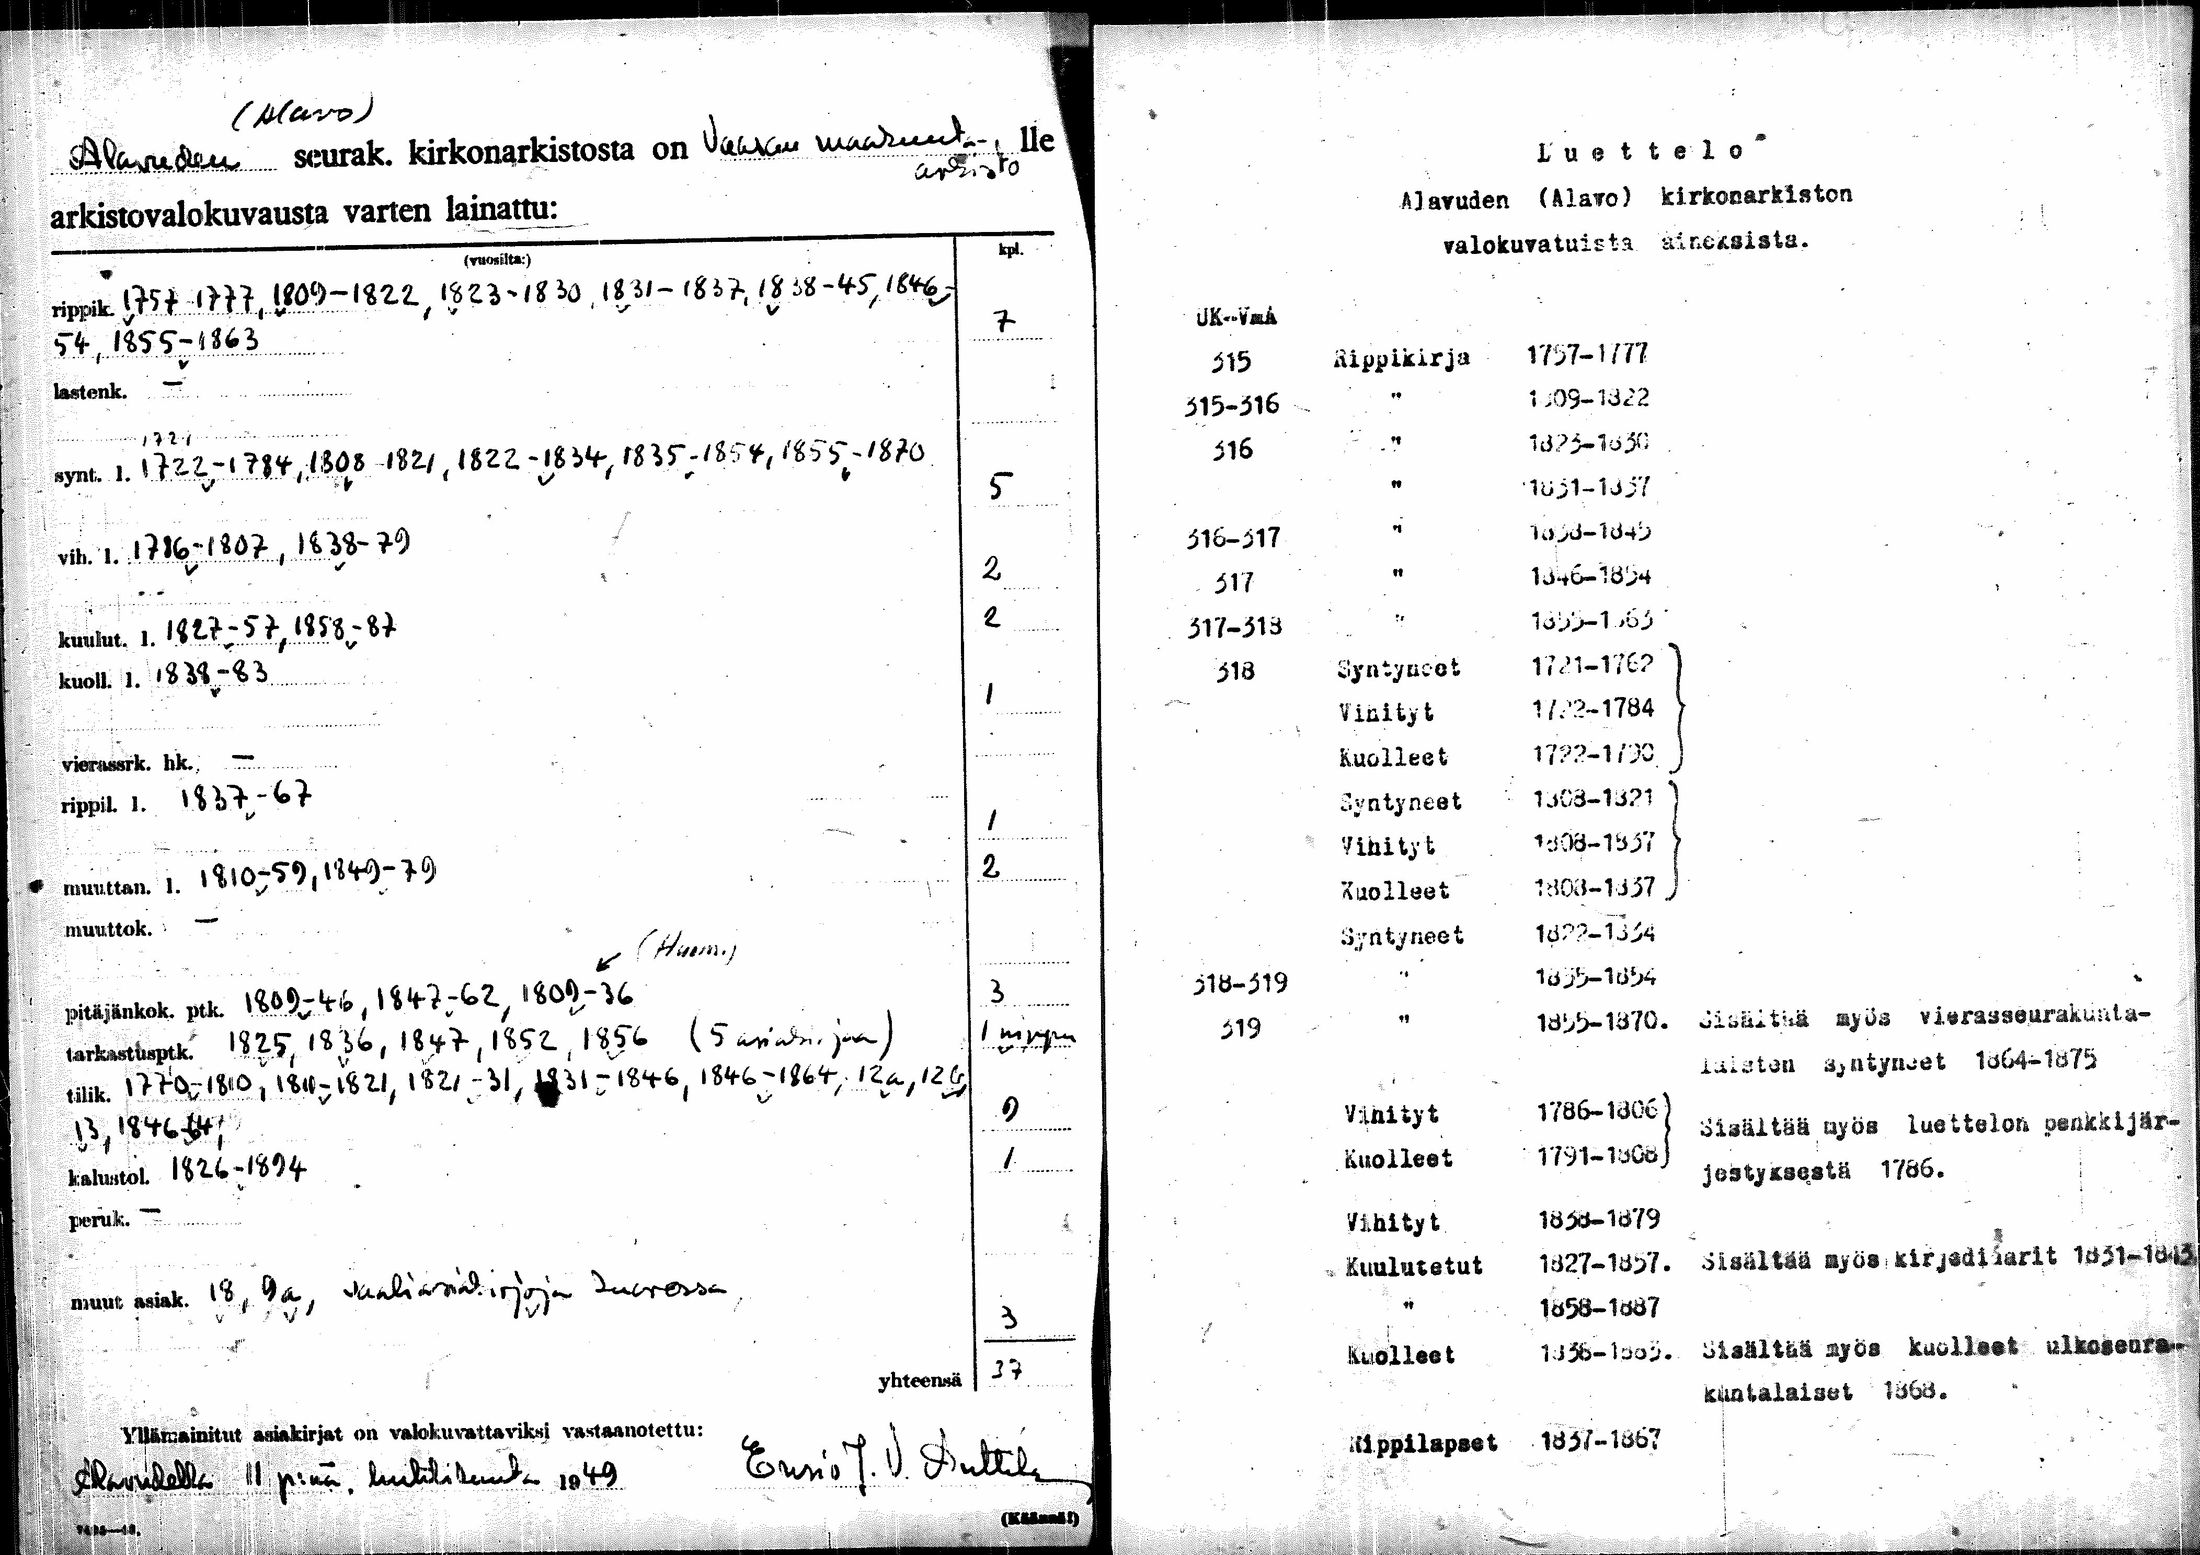 (Alavo)
Alavuden seurak. kirkonarkistosta on Vaasan maakunta-, lle
arkisto
arkistovalokuvausta varten lainattu:
(vuosilta:) kpl.
rippik. 1757-1777, 1809-1822, 1823-1830, 1831-1837, 1838-45, 1846-
54, 1855-1863 7
lastenk. —
1721
synt. l. 1722-1784, 1808-1821, 1822-1834, 1835-1854, 1855-1870 5
vih. l. 1786-1807, 1838-79 2
kuulut. l. 1827-57, 1858-87 2
kuoll. l. 1838-83 1
vierassrk. hk. —
rippil. l. 1837-67 1
muuttan. l. 1810-59, 1849-79 2
muuttok. —
(Huom.)
pitäjänkok. ptk. 1809-46, 1847-62, 1809-36 3
tarkastusptk. 1825, 1836, 1847, 1852, 1856 (5 asiakirjaa) 1 nippu
tilik. 1770-1810, 1810-1821, 1821-31, 1831-1846, 1846-1864, 12a, 12b,
13, 1846-64, 9
kalustol. 1826-1894 1
peruk. —
muut asiak. 18, 9a, vaaliasiakirjoja kuoressa 3
yhteensä 37
Yllämainitut asiakirjat on valokuvattaviksi vastaanotettu:
Alavudella 11 p:nä huhtikuuta 1949 Ensio J. V. Anttila
(Käännä!)
Luettelo
Alavuden (Alavo) kirkonarkiston
valokuvatuista aineksista.
UK-VmA
315 Rippikirja 1757-1777
315-316 " 1809-1822
316 " 1823-1830
" 1831-1837
316-317 " 1838-1845
317 " 1846-1854
317-318 " 1855-1863
318 Syntyneet 1721-1762
Vihityt 1722-1784
Kuolleet 1722-1790
Syntyneet 1808-1821
Vihityt 1808-1837
Kuolleet 1808-1837
Syntyneet 1822-1834
318-319 " 1835-1854
319 " 1855-1870. Sisältää myös vierasseurakunta-
laisten syntyneet 1864-1875
Vihityt 1786-1806
Kuolleet 1791-1808
Sisältää myös luettelon penkkijär-
jestyksestä 1786.
Vihityt 1838-1879
Kuulutetut 1827-1857. Sisältää myös kirjediaarit 1831-1843
" 1858-1887
Kuolleet 1838-1883. Sisältää myös kuolleet ulkoseura-
kuntalaiset 1868.
Rippilapset 1837-1867